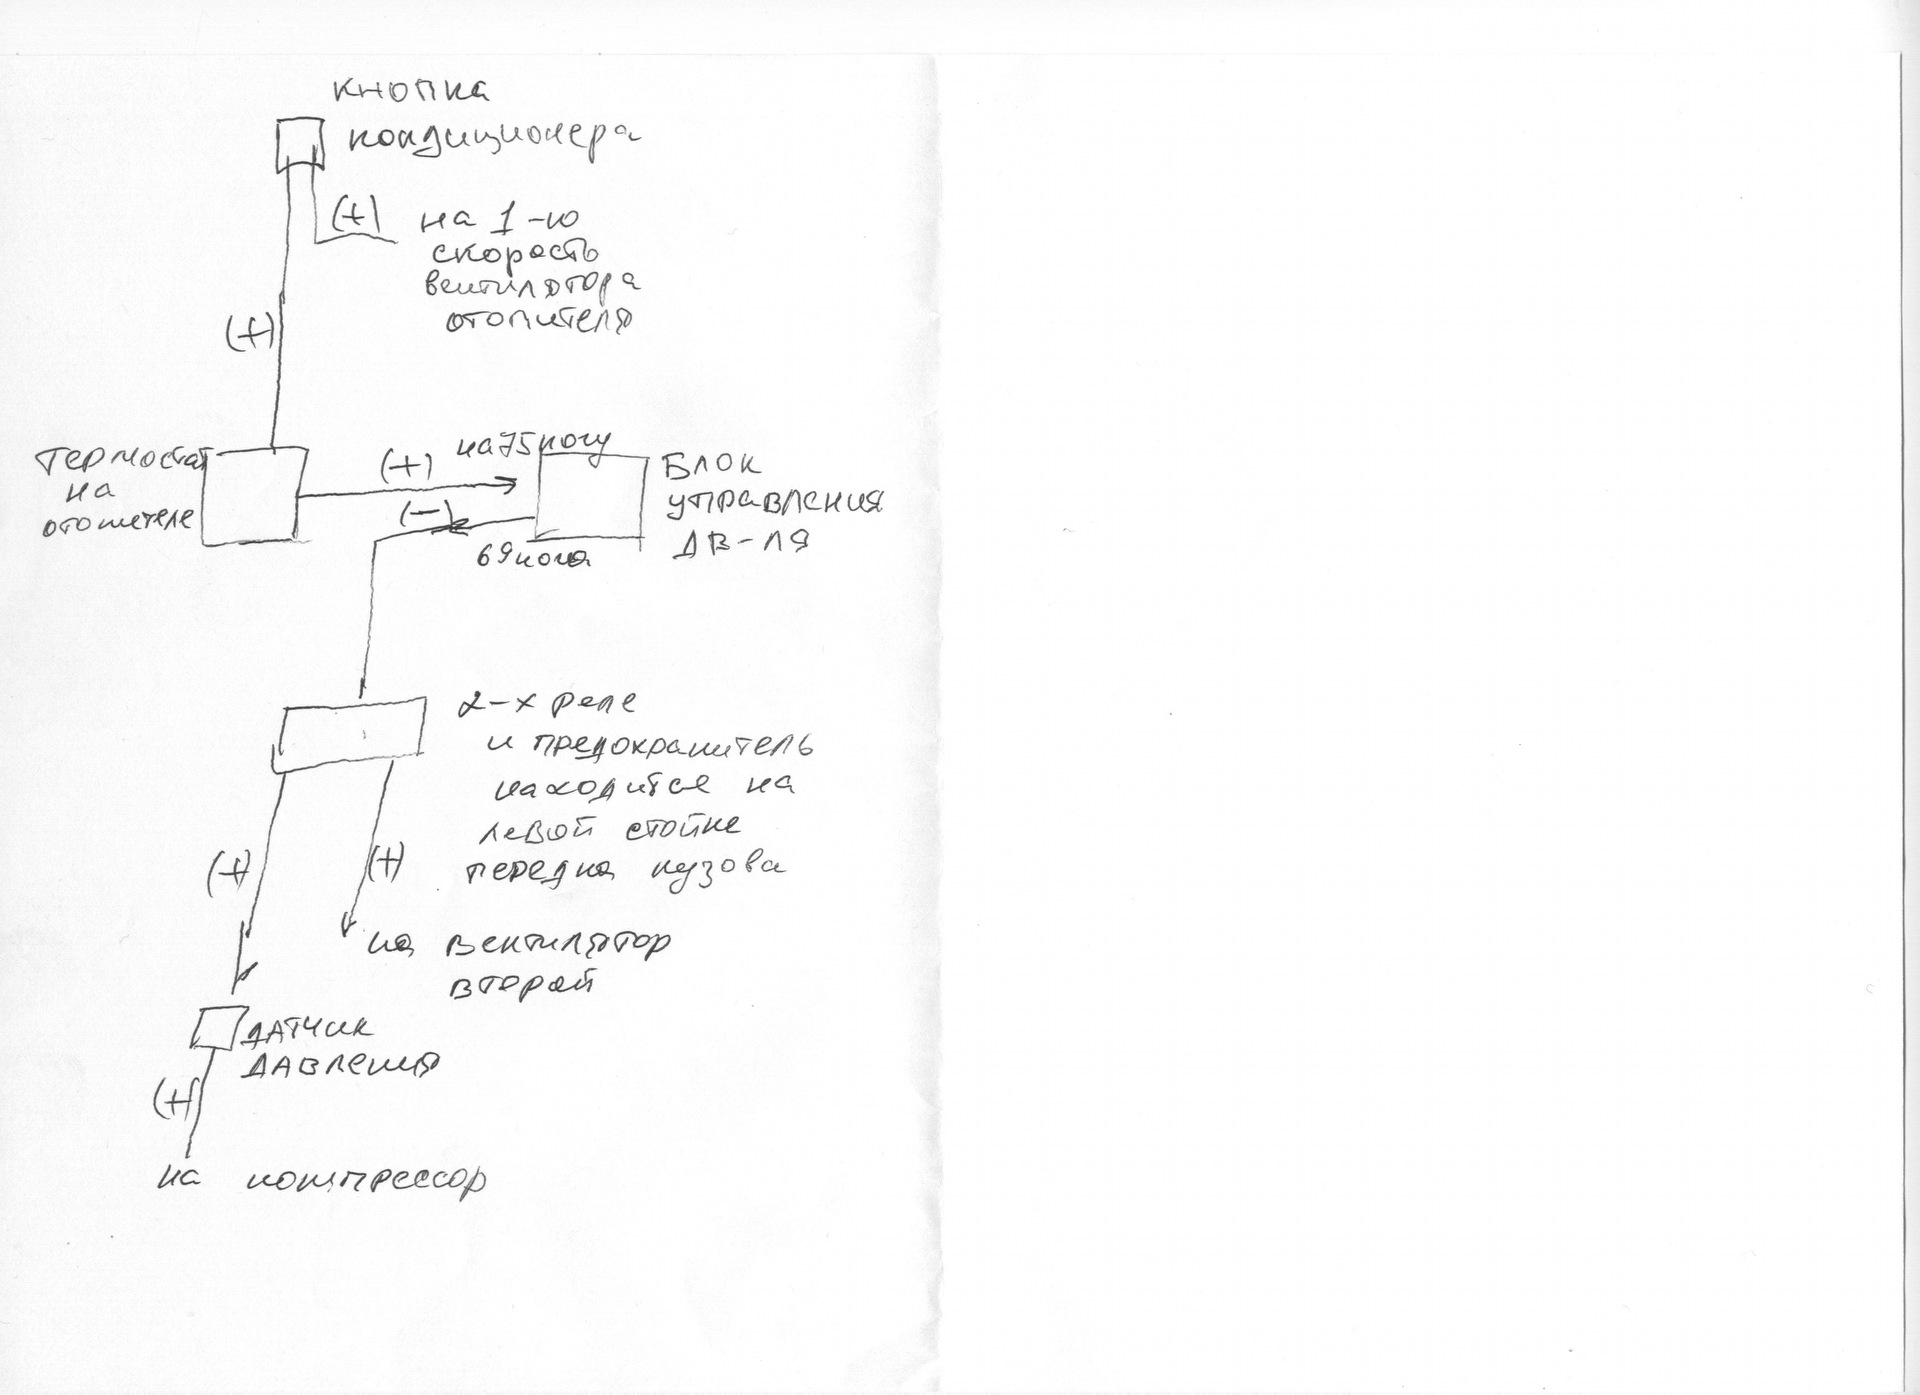 кнопка
кондиционера
(+) на 1-ю
скорость
вентилятора
отопителя
(+)
термостат
на
отопителе
(+)
на 75 ногу
(-)
69 нога
Блок
управления
дв-ля
2-х реле
и предохранитель
находится на
левой стойке
передка кузова
(+)
(+)
на вентилятор
второй
датчик
давления
(+)
на компрессор